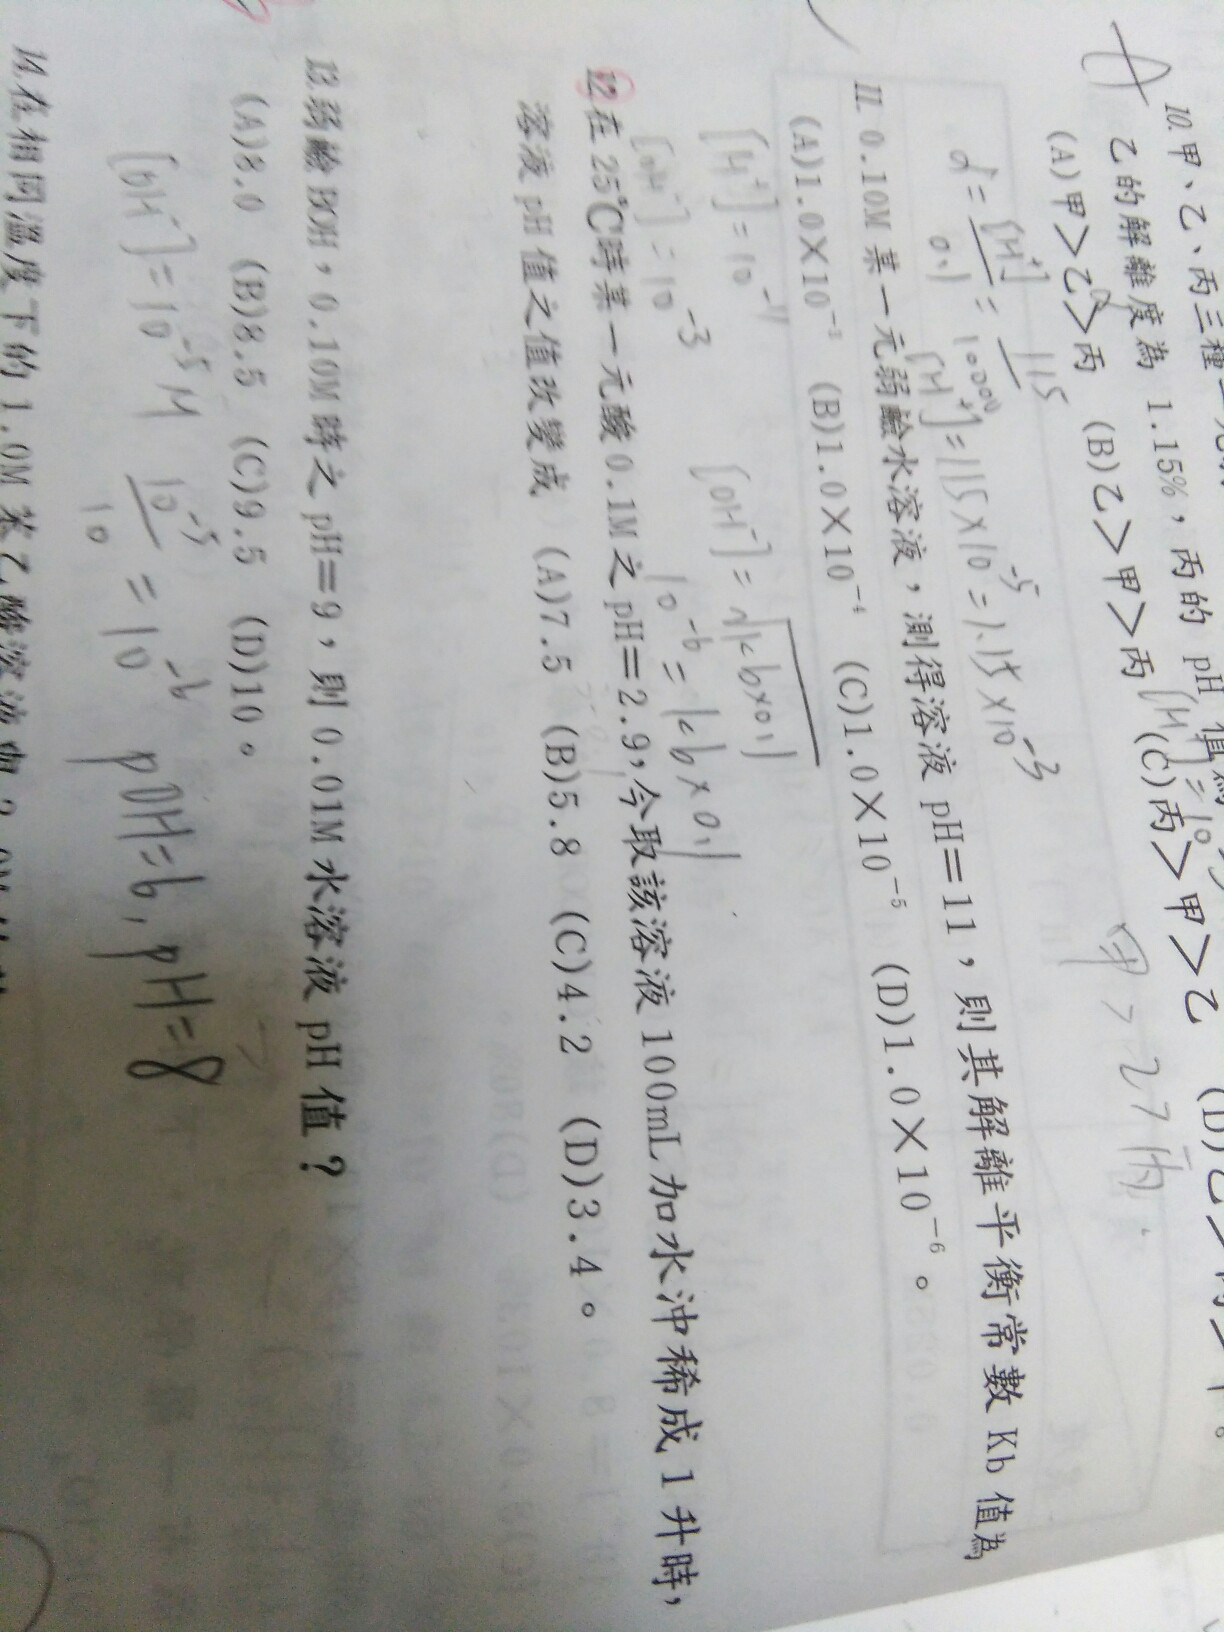 10.甲、乙、丙三種
乙的解離度為 1.15%，丙的 pH 值為
(A)甲＞乙＞丙 (B)乙＞甲＞丙 (C)丙＞甲＞乙
甲＞乙＞丙
α = [H⁺]/0.1 = 115/10000
[H⁺] = 115×10⁻⁵ = 1.15×10⁻³
11. 0.10M 某一元弱鹼水溶液，測得溶液 pH＝11，則其解離平衡常數 Kb 值為
(A)1.0×10⁻³ (B)1.0×10⁻⁴ (C)1.0×10⁻⁵ (D)1.0×10⁻⁶。
[H⁺] = 10⁻¹¹ [OH⁻] = √kb×0.1
[OH⁻] = 10⁻³ 10⁻⁶ = kb×0.1
12.在 25℃時某一元酸 0.1M 之 pH＝2.9，今取該溶液 100mL 加水沖稀成 1 升時，
溶液 pH 值之值改變成 (A)7.5 (B)5.8 (C)4.2 (D)3.4。
13.弱鹼 BOH，0.10M 時之 pH＝9，則 0.01M 水溶液 pH 值？
(A)8.0 (B)8.5 (C)9.5 (D)10。
[OH⁻] = 10⁻⁵ M 10⁻⁵/10 = 10⁻⁶ pOH=6, pH=8
14.在相同溫度下的 1.0M 苯乙酸溶液